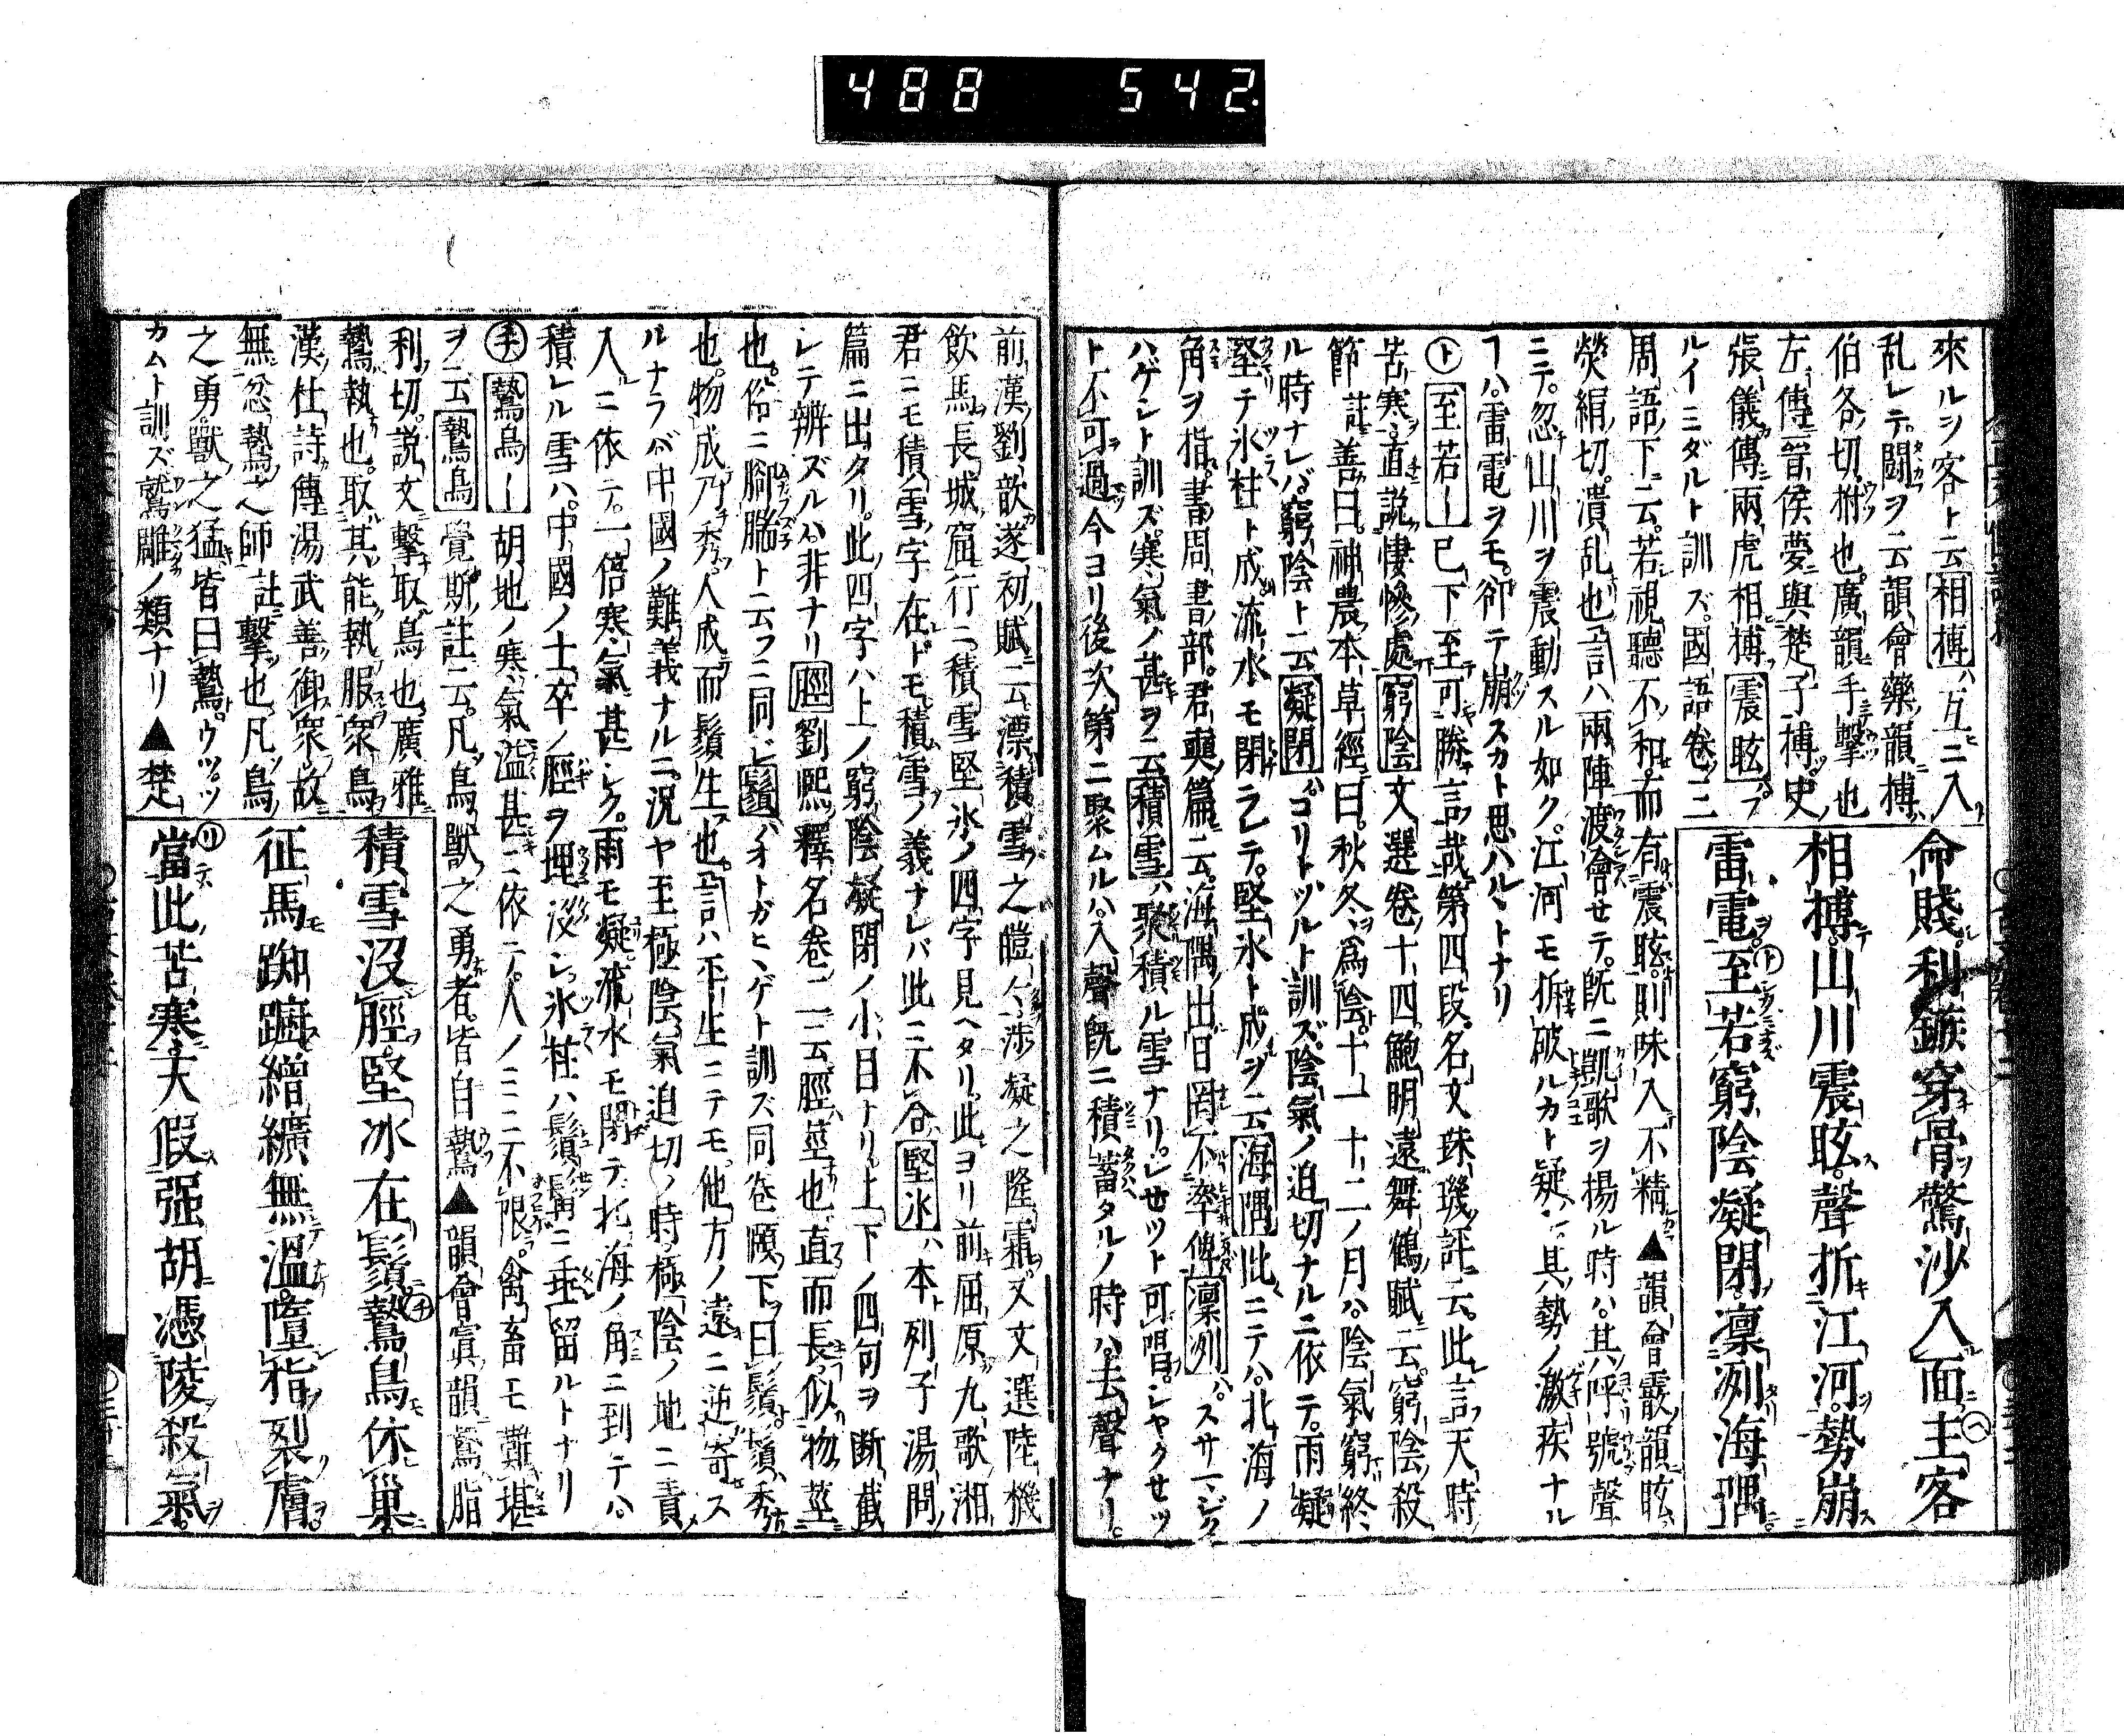 488 542.
來ルヲ客ト云相搏ハ互ニ入
乱レテ鬪ヲ云韻會藥韻搏ハ
伯各切拊也廣韻手擊也
左傳晉侯夢與楚子搏史
張儀傳兩虎相搏震眩ハフ
ルイミダルト訓ズ國語卷三
周語下ニ云若視聽不和而有震眩則味入不精▲韻會霰韻眩ハ
熒絹切潰乱也言ハ兩陣渡會セテ既ニ凱歌ヲ揚ル時ハ其呼號聲
ニテ忽山川ヲ震動スル如ク江河モ拆破ルカト疑ハ其勢ノ激疾ナル
ヿハ雷電ヲモ卻テ崩スカト思ハルヽトナリ
ト至若ー已下至可勝言哉第四段名文珠璣註云此言天時
苦寒直說悽慘處窮陰文選卷十四鮑明遠舞鶴賦云窮陰殺
節註善曰神農本草經曰秋冬爲陰十一十二ノ月ハ陰氣窮終
ル時ナレバ窮陰ト云凝閉ハコリトヅルト訓ズ陰氣ノ迫切ナルニ依テ雨凝
堅テ氷柱ト成流水モ閉ラレテ堅氷ト成ヲ云海隅此ニテハ北海ノ
角ヲ指書周書部君奭篇ニ云海隅出日罔不率俾凜冽ハスサマジク
ハゲシト訓ズ寒氣ノ甚ヲ云積雪ハ聚積ル雪ナリシセツト可唱シヤクセツ
ト不可過今ヨリ後次第ニ聚ムルハ入聲既ニ積蓄タルノ時ハ去聲ナリ
命賤利鏃穿骨驚沙入面主客
相搏山川震眩聲折江河勢崩
雷電至若窮陰凝閉凜冽海隅
前漢劉歆遂初賦ニ云漂積雪之皚々涉凝之隆霜又文選陸機
飮馬長城窟行ニ積雪堅氷ノ四字見ヘタリ此ヨリ前屈原九歌湘
君ニモ積雪字在ドモ積雪ノ義ナレバ此ニ不合堅氷ハ本ト列子湯問
篇ニ出タリ此四字ハ上ノ窮陰凝閉ノ小目ナリ上下ノ四句ヲ断截
レテ辨ズルハ非ナリ脛劉熙釋名卷二云脛莖也直而長似物莖
也俗ニ腳ト云フニ同ビ鬚ハオトガヒヒゲト訓ズ同卷頤下曰鬚鬚ハ秀
也物成乃秀人成而鬚生也言ハ平生ニテモ他方ノ遠ニ逆寄ス
ルナラバ中國ノ難義ナルニ況ヤ至極陰氣迫切ノ時極陰ノ地ニ責
入ニ依テ一倍寒氣甚シク雨モ凝流水モ閉テ北海ノ角ニ到テハ
積レル雪ハ中國ノ士卒ノ脛ヲ埋沒シ氷柱ハ鬚ニ垂留ルトナリ
チ鷙鳥ー胡地ノ寒氣溢甚ニ依テ人ノミニ不限禽畜モ難堪
ヲ云鷙鳥覺斯註ニ云凡鳥獸之勇者皆曰鷙▲韻會寘韻鷙脂
利切說文擊取鳥也廣雅
鷙執也取其能執服衆鳥
漢杜詩傳湯武善御衆故
無忿鷙之師註擊也凡鳥
之勇獸之猛皆曰鷙ウツヅ
カムト訓ズ鷲雕ノ類ナリ▲楚
積雪沒脛堅冰在鬚鷙鳥休巢
征馬踟躕繒纊無溫墮指裂膚
當此苦寒天假强胡憑陵殺氣